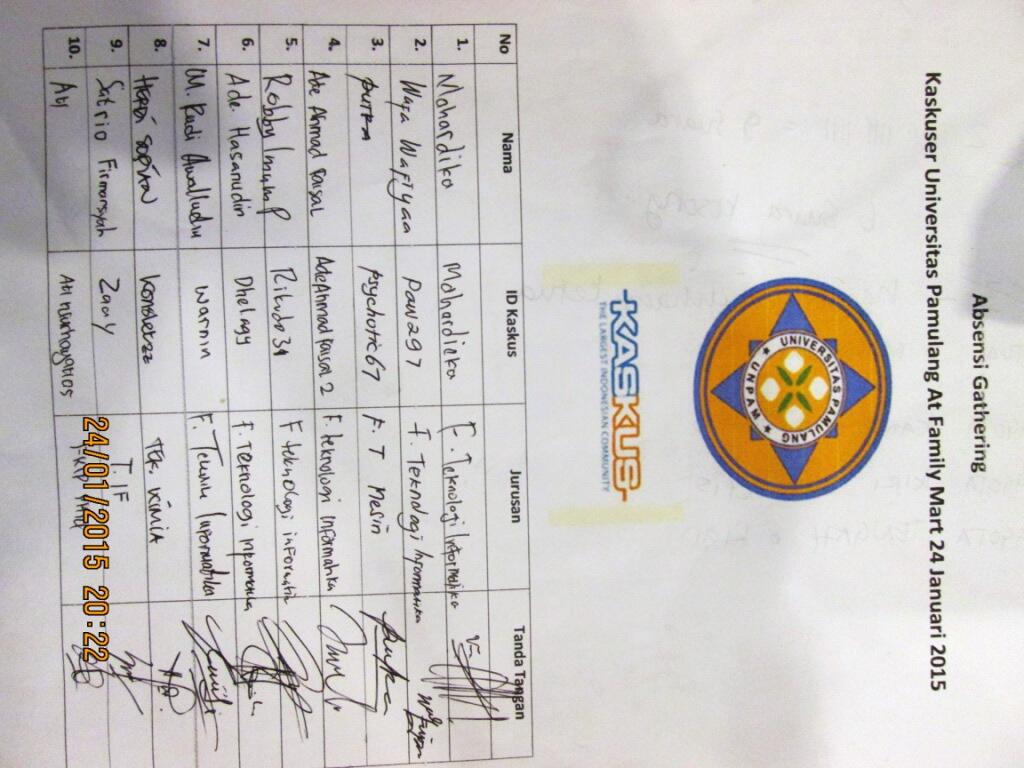 Absensi Gathering
Kaskuser Universitas Pamulang At Family Mart 24 Januari 2015
UNIVERSITAS PAMULANG
UNPAM
KASKUS
THE LARGEST INDONESIAN COMMUNITY
No Nama ID Kaskus Jurusan Tanda Tangan
1. Mahardika Mahardicka F. Teknologi Informatika
2. Wafa Wafiyaa Paw297 F. Teknologi Informatika
3. putra psychotic67 F. T Mesin
4. Ade Ahmad Faisal AdeAhmadFaisal2 F. teknologi informatika
5. Robby F teknologi informatik
6. Ade Hasanudin Dhelagy F. Teknologi informatika
7. M. Rudi Awalludin warnin F. Teknik Informatika
8. HERDI SOPIAN TEK. KIMIA
9. Satrio Firmansyah Zaaay T. IF
10. Abi
24/01/2015 20:22